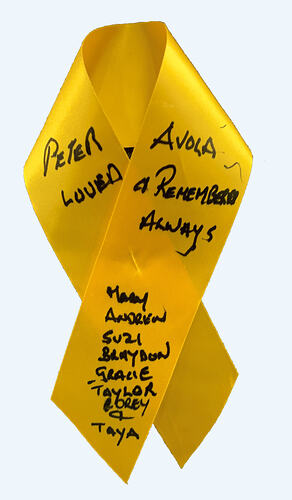 PETER AVOLA
LOVED & REMEMBERED
ALWAYS
MARY
ANDREW
SUZI
BRAYDON
GRACIE
TAYLOR
COREY
&
TAYA